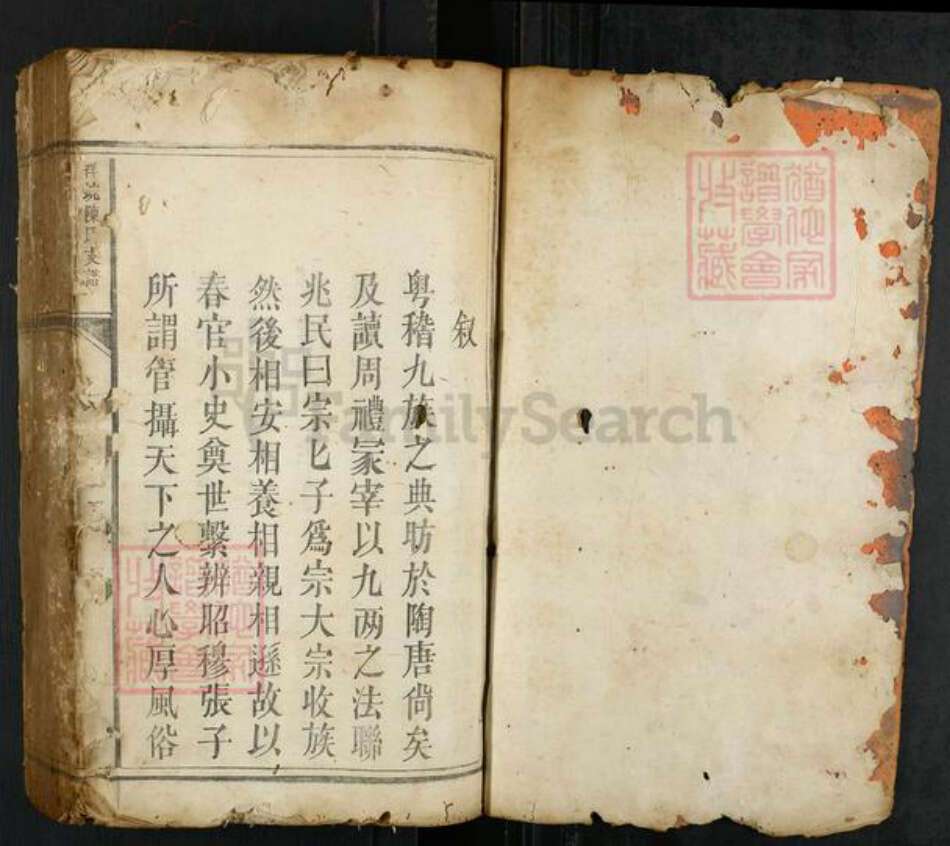 叙
粤稽九族之典昉於陶唐尙矣
及讀周禮冡宰以九两之法聯
兆民曰宗匕子爲宗大宗收族
然後相安相養相親相遜故以
春官小史奠世繫辨昭穆張子
所謂管攝天下之人心厚風俗
陳氏支譜
譜學會
收藏
FamilySearch